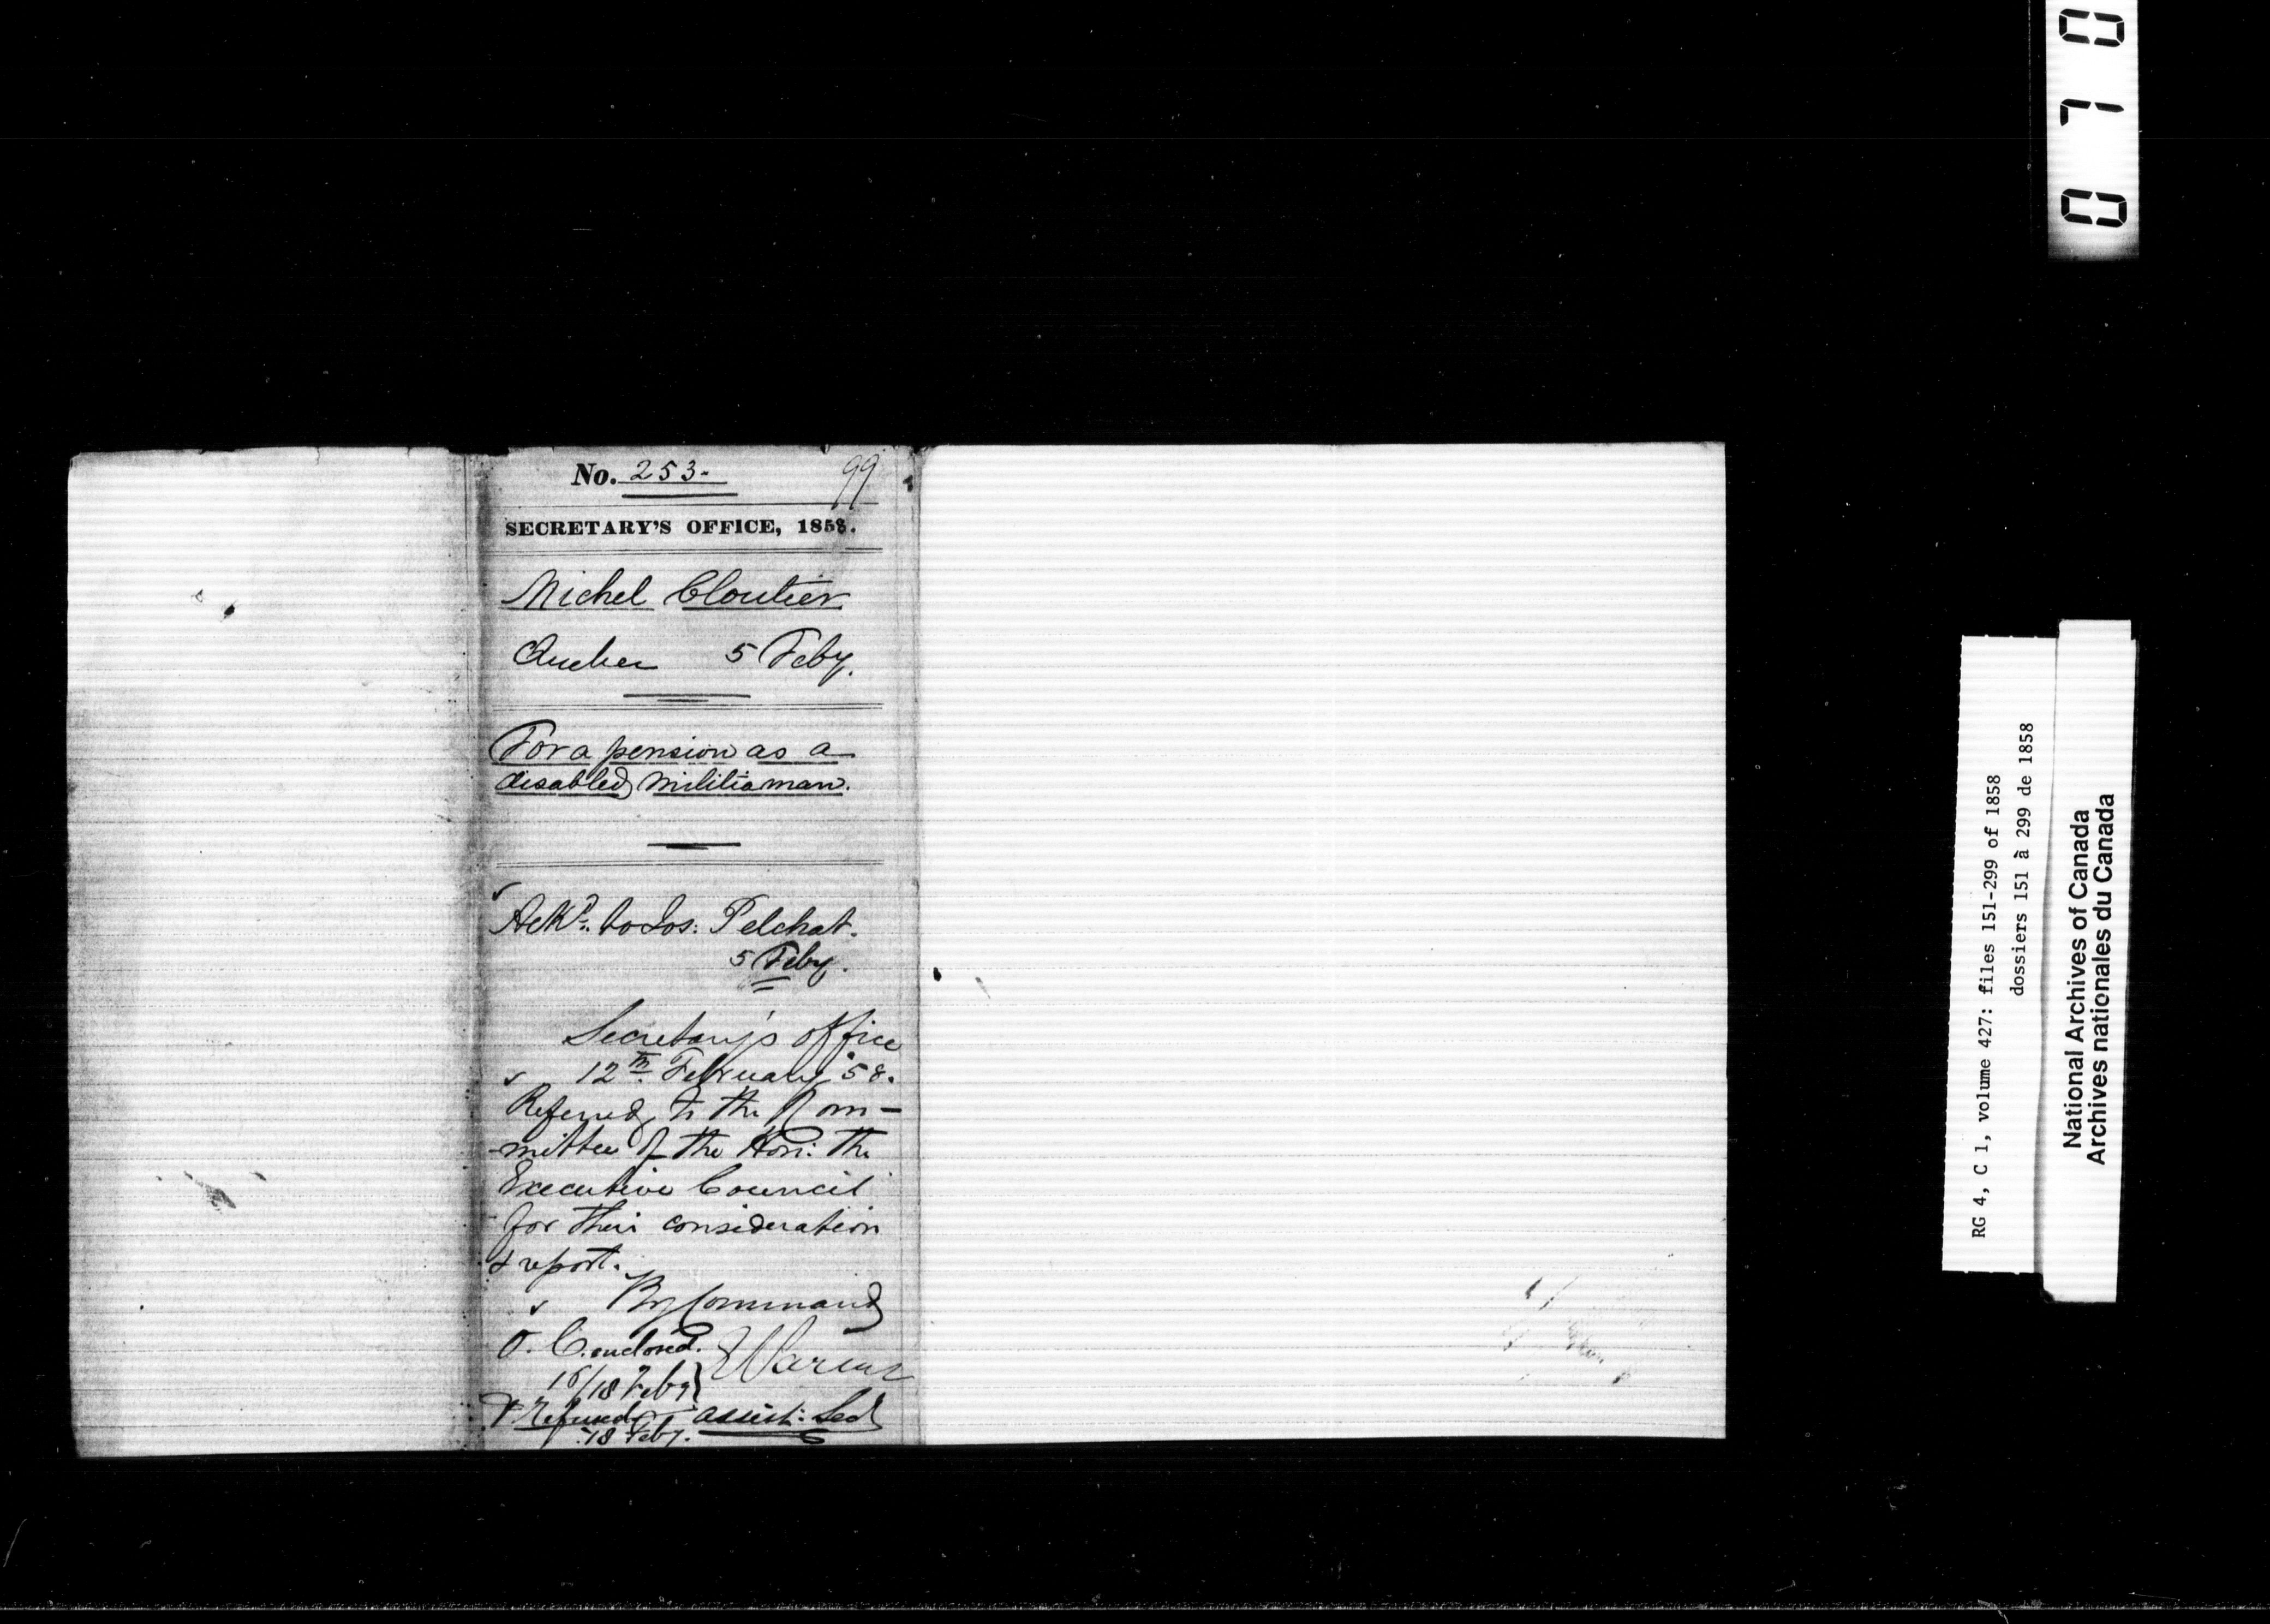 No. 253- 99
SECRETARY'S OFFICE, 1858.
Michel Cloutier
Quebec 5 Feby.
For a pension as a
disabled militiaman.
Ackd. to Jos: Pelchat.
5 Feby.
Secretary's office
12th. February 58.
Referred to the Com-
-mittee of the Hon: the
Executive Council
for their consideration
& report.
By Command
O. C. enclosed.
16/18 Feby
Refused assist: Sec
18 Feby.
0 7 0
RG 4, C 1, volume 427: files 151-299 of 1858
dossiers 151 à 299 de 1858
National Archives of Canada
Archives nationales du Canada